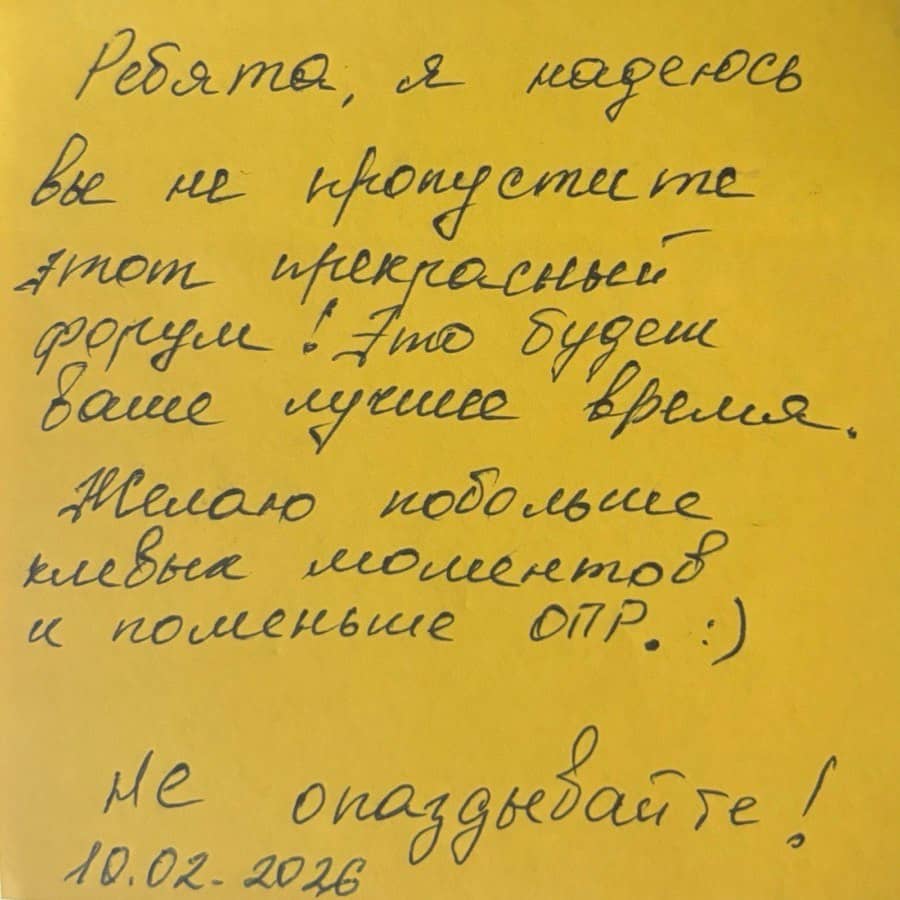 Ребята, я надеюсь
вы не пропустите
этот прекрасный
форум! Это будет
ваше лучшее время.
Желаю побольше
клевых моментов
и поменьше ОПР. :)
Не опаздывайте!
10.02.2026